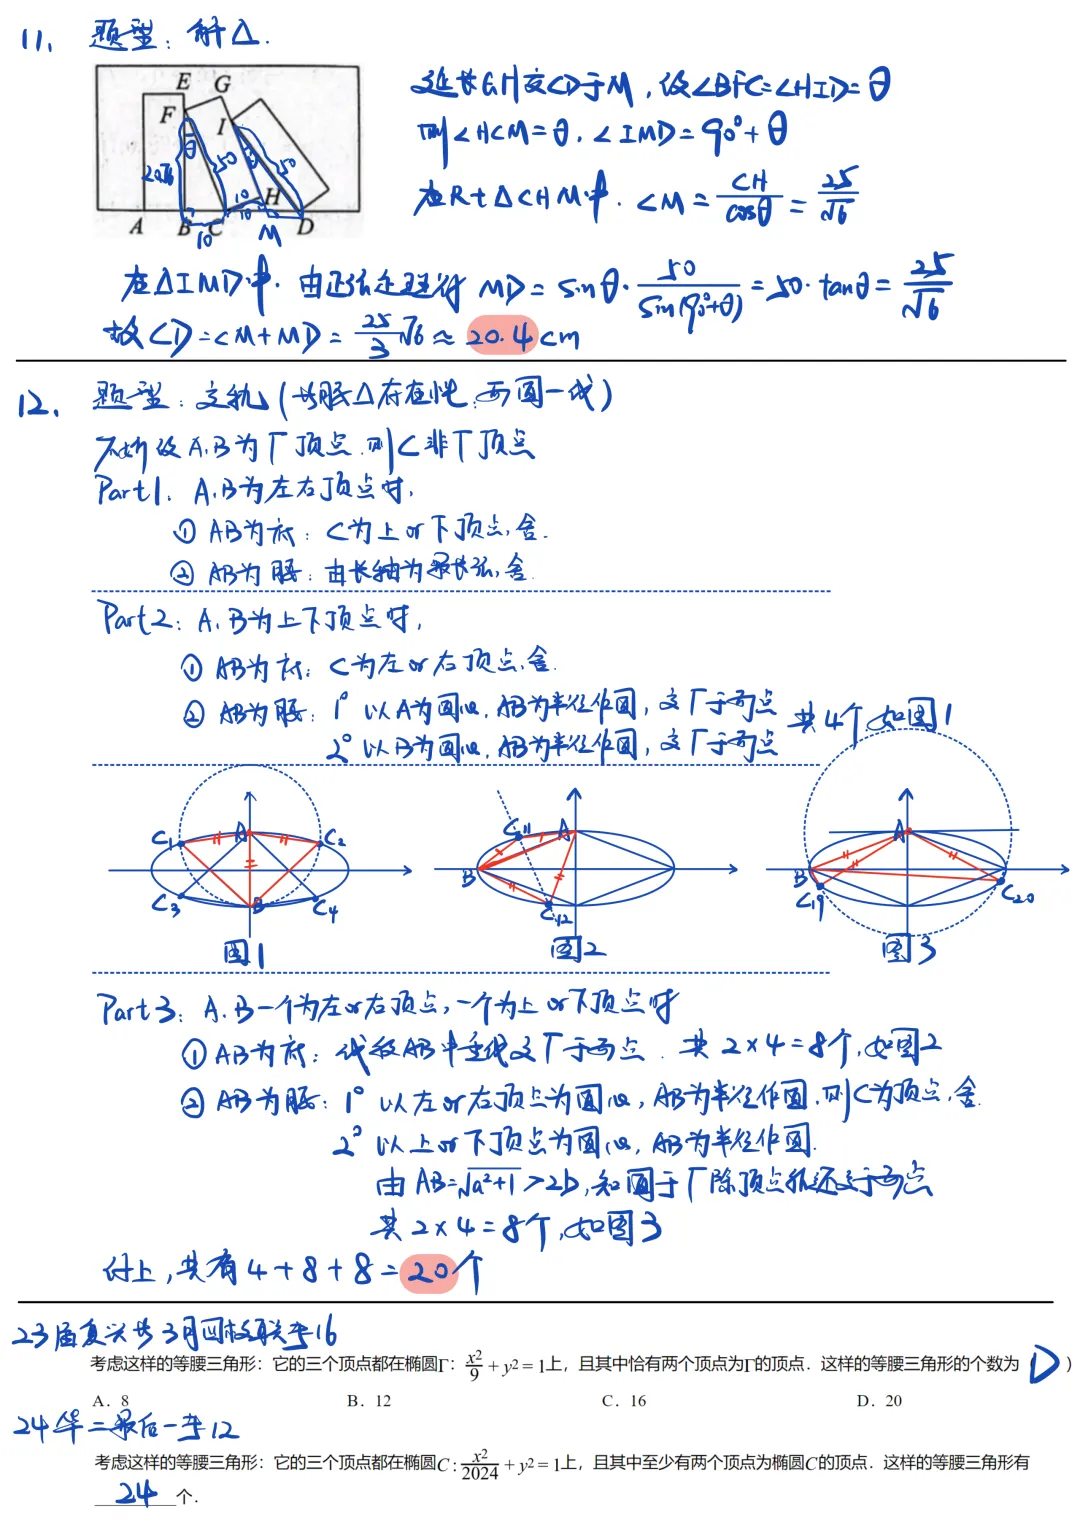 11. 题型：解△.
E G
F I
θ θ
20√6 50 50
10 H
10
A B C M D
10
延长GH交CD于M，设∠BFC=∠HID=θ
则∠HCM=θ，∠IMD=90°+θ
在Rt△CHM中．CM=CH/cosθ=25/√6
在△IMD中．由正弦定理得 MD=sinθ·50/sin(90°+θ)=50·tanθ=25/√6
故CD=CM+MD=25/3√6≈20.4cm
12. 题型：交轨(等腰△存在性：两圆一线)
不妨设A.B为Γ顶点．则C非Γ顶点
Part1：A.B为左右顶点时，
① AB为底：C为上or下顶点，舍．
② AB为腰：由长轴为最长弦，舍．
Part2：A.B为上下顶点时，
① AB为底：C为左or右顶点，舍．
② AB为腰：1° 以A为圆心，AB为半径作圆，交Γ于两点
2° 以B为圆心，AB为半径作圆，交Γ于两点
共4个，如图1
C1 A C2
C3 B C4
图1
C11 A
B
C12
图2
A
B
C19 C20
图3
Part3：A.B一个为左or右顶点，一个为上or下顶点时
① AB为底：线段AB中垂线交Γ于两点．共2×4=8个，如图2
② AB为腰：1° 以左or右顶点为圆心，AB为半径作圆，则C为顶点，舍．
2° 以上or下顶点为圆心，AB为半径作圆．
由AB=√a²+1>2b，知圆于Γ除顶点外还交于两点
共2×4=8个，如图3
综上，共有4+8+8=20个
23届复兴高3月四校联考16
考虑这样的等腰三角形：它的三个顶点都在椭圆Γ：x²/9+y²=1上，且其中恰有两个顶点为Γ的顶点．这样的等腰三角形的个数为（D）
A．8 B．12 C．16 D．20
24华二最后一考12
考虑这样的等腰三角形：它的三个顶点都在椭圆C：x²/2024+y²=1上，且其中至少有两个顶点为椭圆C的顶点．这样的等腰三角形有
24个．